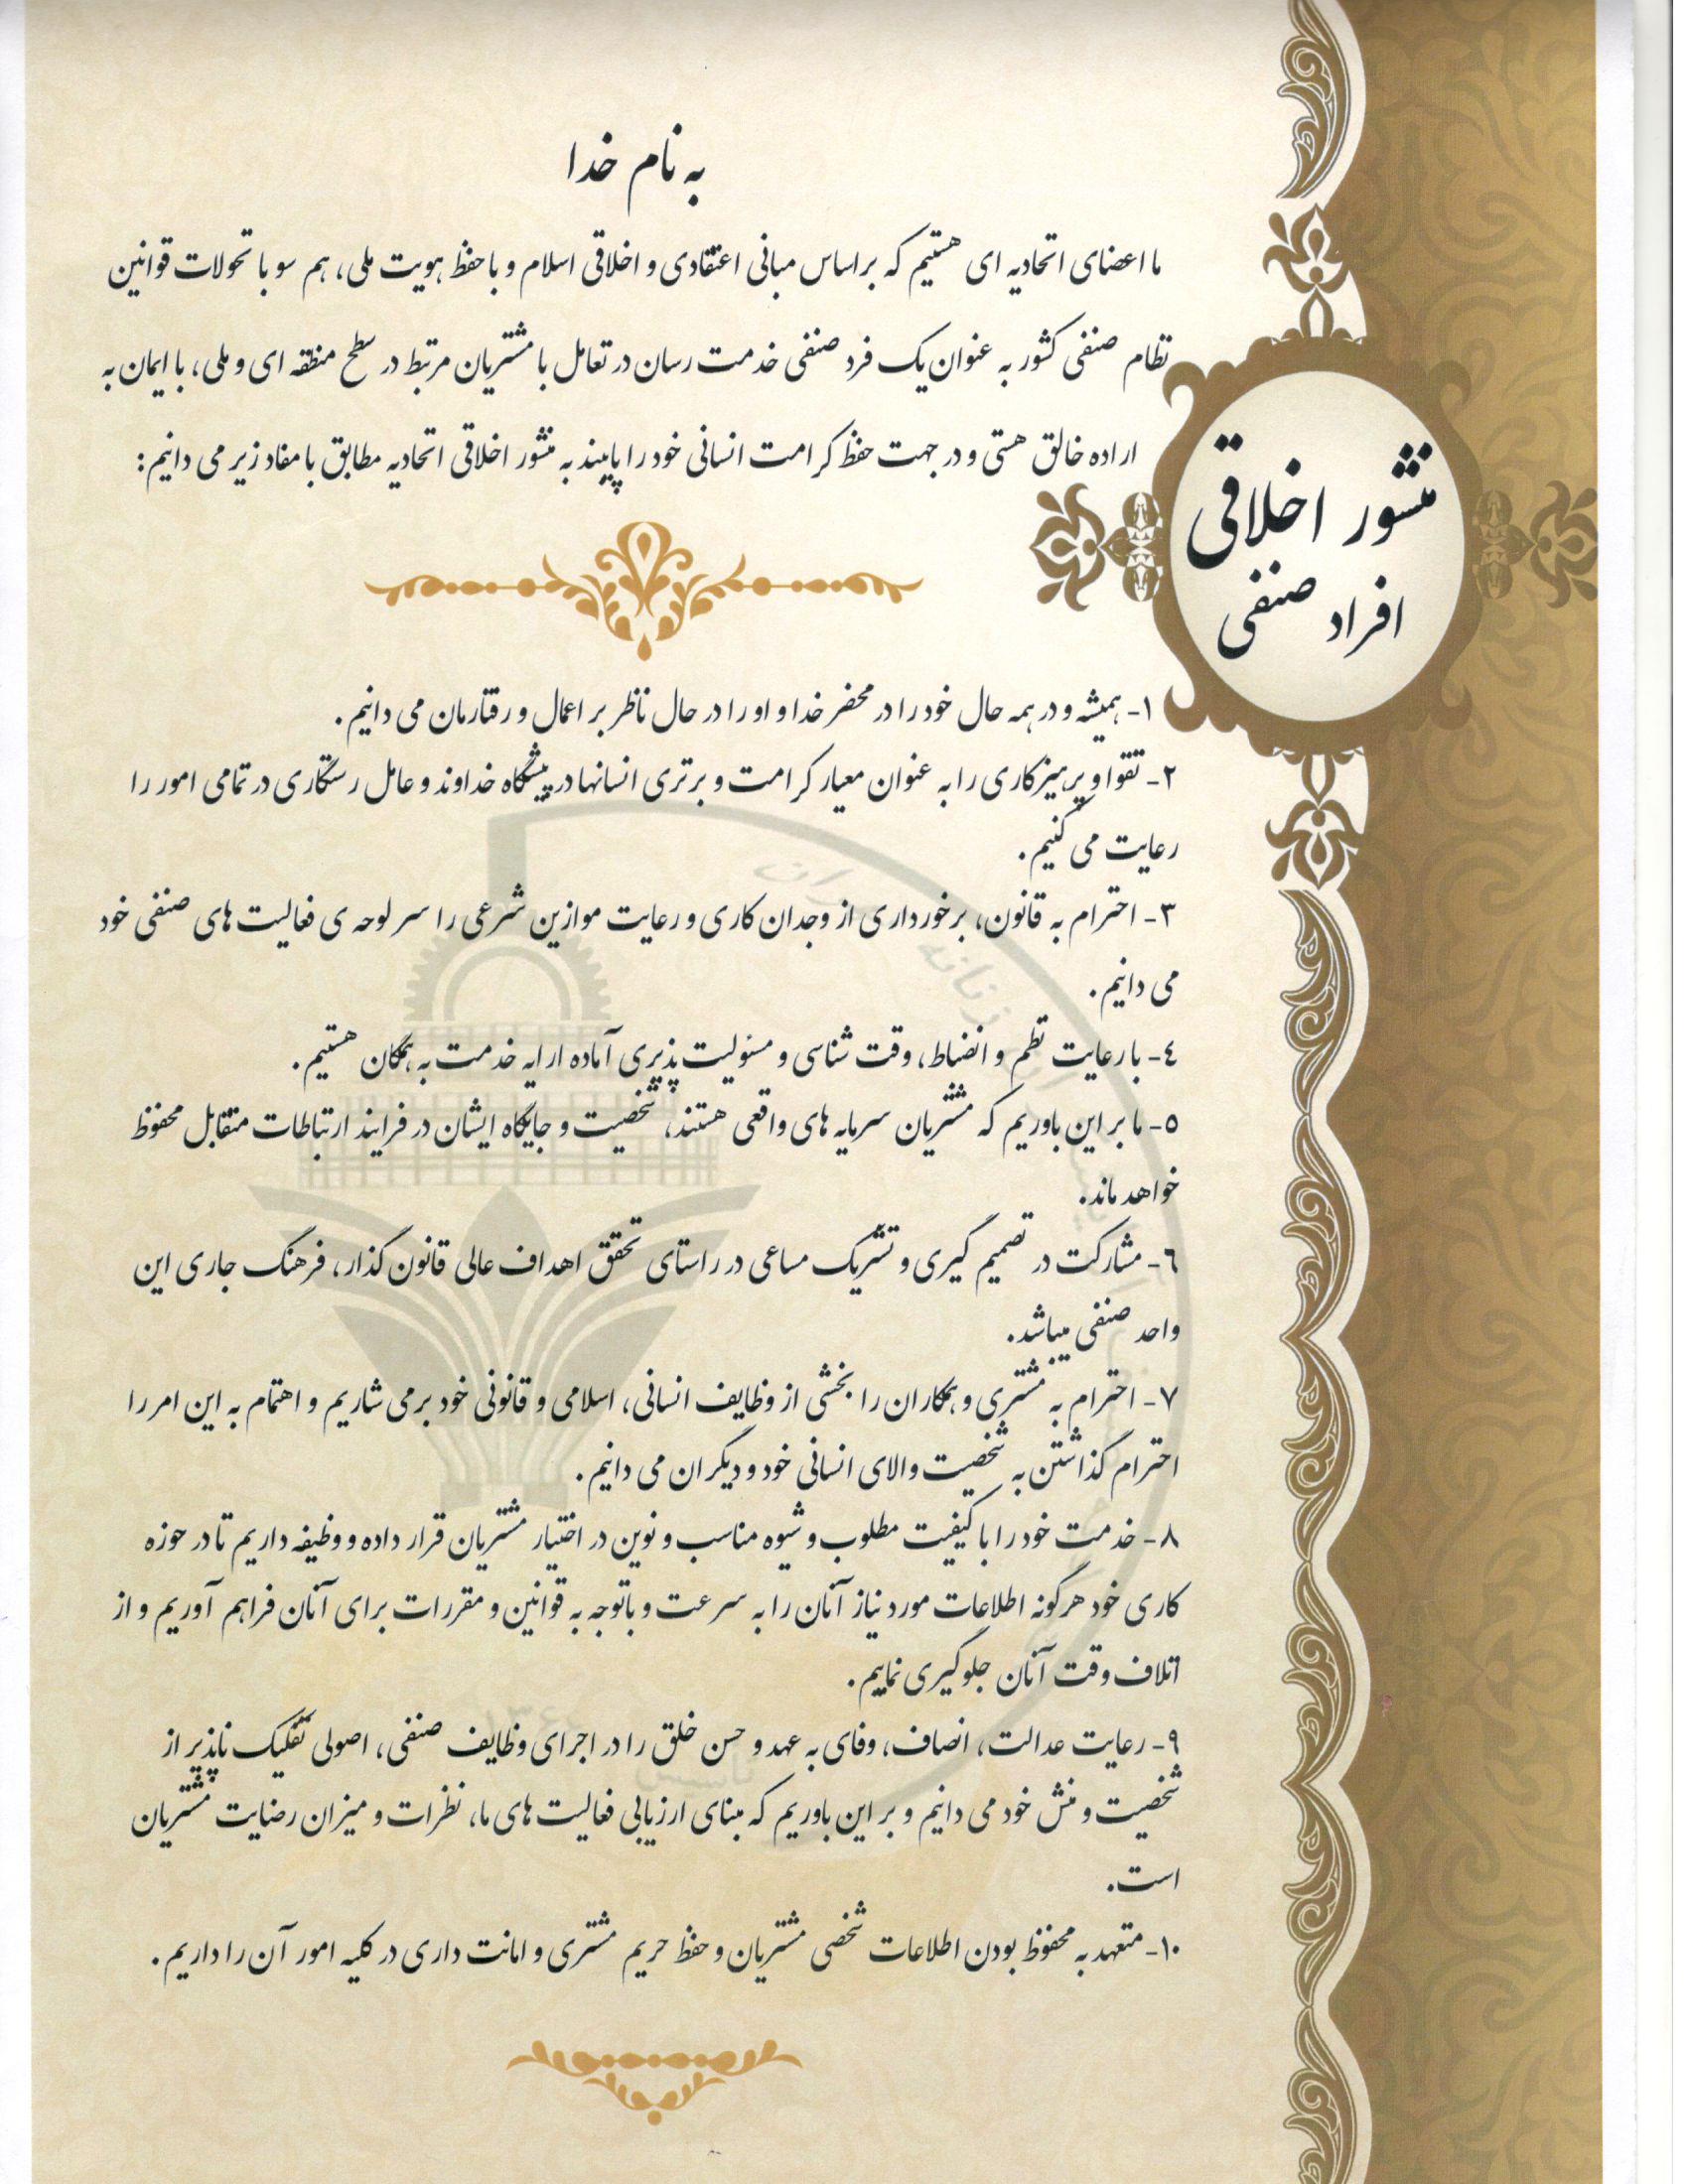 به نام خدا
ما اعضای اتحادیه ای هستیم که براساس مبانی اعتقادی و اخلاقی اسلام و با حفظ هویت ملی، هم سو با تحولات قوانین
نظام صنفی کشور به عنوان یک فرد صنفی خدمت رسان در تعامل با مشتریان مرتبط در سطح منطقه ای و ملی، با ایمان به
اراده خالق هستی و در جهت حفظ کرامت انسانی خود را پایبند به منشور اخلاقی اتحادیه مطابق با مفاد زیر می دانیم:
منشور اخلاقی
افراد صنفی
۱- همیشه و در همه حال خود را در محضر خدا و او را در حال ناظر بر اعمال و رفتارمان می دانیم.
۲- تقوا و پرهیزکاری را به عنوان معیار کرامت و برتری انسانها در پیشگاه خداوند و عامل رستگاری در تمامی امور را
رعایت می کنیم.
۳- احترام به قانون، برخورداری از وجدان کاری و رعایت موازین شرعی را سر لوحه ی فعالیت های صنفی خود
می دانیم.
٤- با رعایت نظم و انضباط، وقت شناسی و مسئولیت پذیری آماده ارایه خدمت به همگان هستیم.
۵- ما بر این باوریم که مشتریان سرمایه های واقعی هستند، شخصیت و جایگاه ایشان در فرایند ارتباطات متقابل محفوظ
خواهد ماند.
٦- مشارکت در تصمیم گیری و تشریک مساعی در راستای تحقق اهداف عالی قانون گذار، فرهنگ جاری این
واحد صنفی میباشد.
۷- احترام به مشتری و همکاران را بخشی از وظایف انسانی، اسلامی و قانونی خود برمی شماریم و اهتمام به این امر را
احترام گذاشتن به شخصیت والای انسانی خود و دیگران می دانیم.
۸- خدمت خود را با کیفیت مطلوب و شیوه مناسب و نوین در اختیار مشتریان قرار داده و وظیفه داریم تا در حوزه
کاری خود هرگونه اطلاعات مورد نیاز آنان را به سرعت و باتوجه به قوانین و مقررات برای آنان فراهم آوریم و از
اتلاف وقت آنان جلوگیری نماییم.
۹- رعایت عدالت، انصاف، وفای به عهد و حسن خلق را در اجرای وظایف صنفی، اصولی تفکیک ناپذیر از
شخصیت و منش خود می دانیم و بر این باوریم که مبنای ارزیابی فعالیت های ما، نظرات و میزان رضایت مشتریان
است.
۱۰- متعهد به محفوظ بودن اطلاعات شخصی مشتریان و حفظ حریم مشتری و امانت داری در کلیه امور آن را داریم.